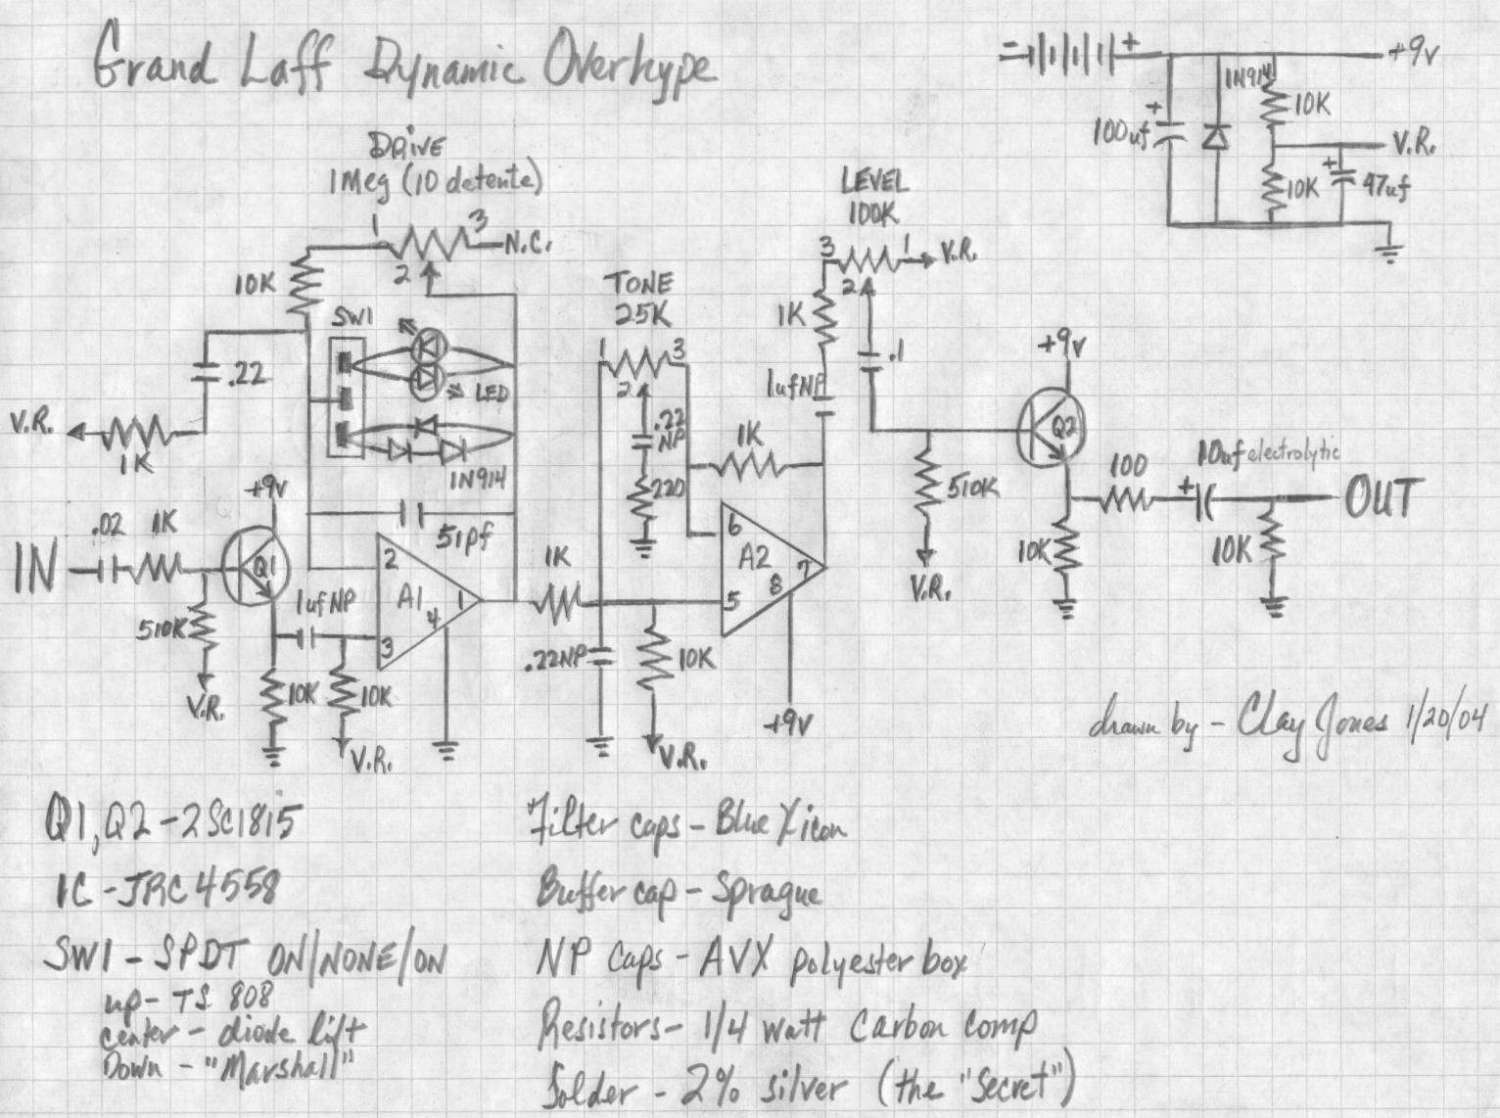 Grand Laff Dynamic Overhype
+
+9v
1N914
10K
100uf
+
V.R.
10K
+
47uf
DRiVE
1Meg (10 detente)
1
3
N.C.
2
10K
SW1
LED
.22
V.R.
1K
1N914
+9v
.02
1K
IN
Q1
510K
V.R.
1ufNP
51pf
2
A1
1
4
3
10K
10K
V.R.
TONE
25K
1
3
2
.22
NP
220
1K
1K
6
A2
7
8
5
.22NP
10K
V.R.
+9v
LEVEL
100K
3
1
V.R.
2
1K
.1
1ufNP
+9v
Q2
510K
V.R.
100
10uf electrolytic
+
OUT
10K
10K
drawn by - Clay Jones 1/20/04
Q1, Q2 - 2SC1815
IC - JRC 4558
SW1 - SPDT ON/NONE/ON
up - TS 808
center - diode lift
Down - "Marshall"
Filter caps - Blue Xicon
Buffer cap - Sprague
NP caps - AVX polyester box
Resistors - 1/4 watt Carbon comp
Solder - 2% silver (the "Secret")